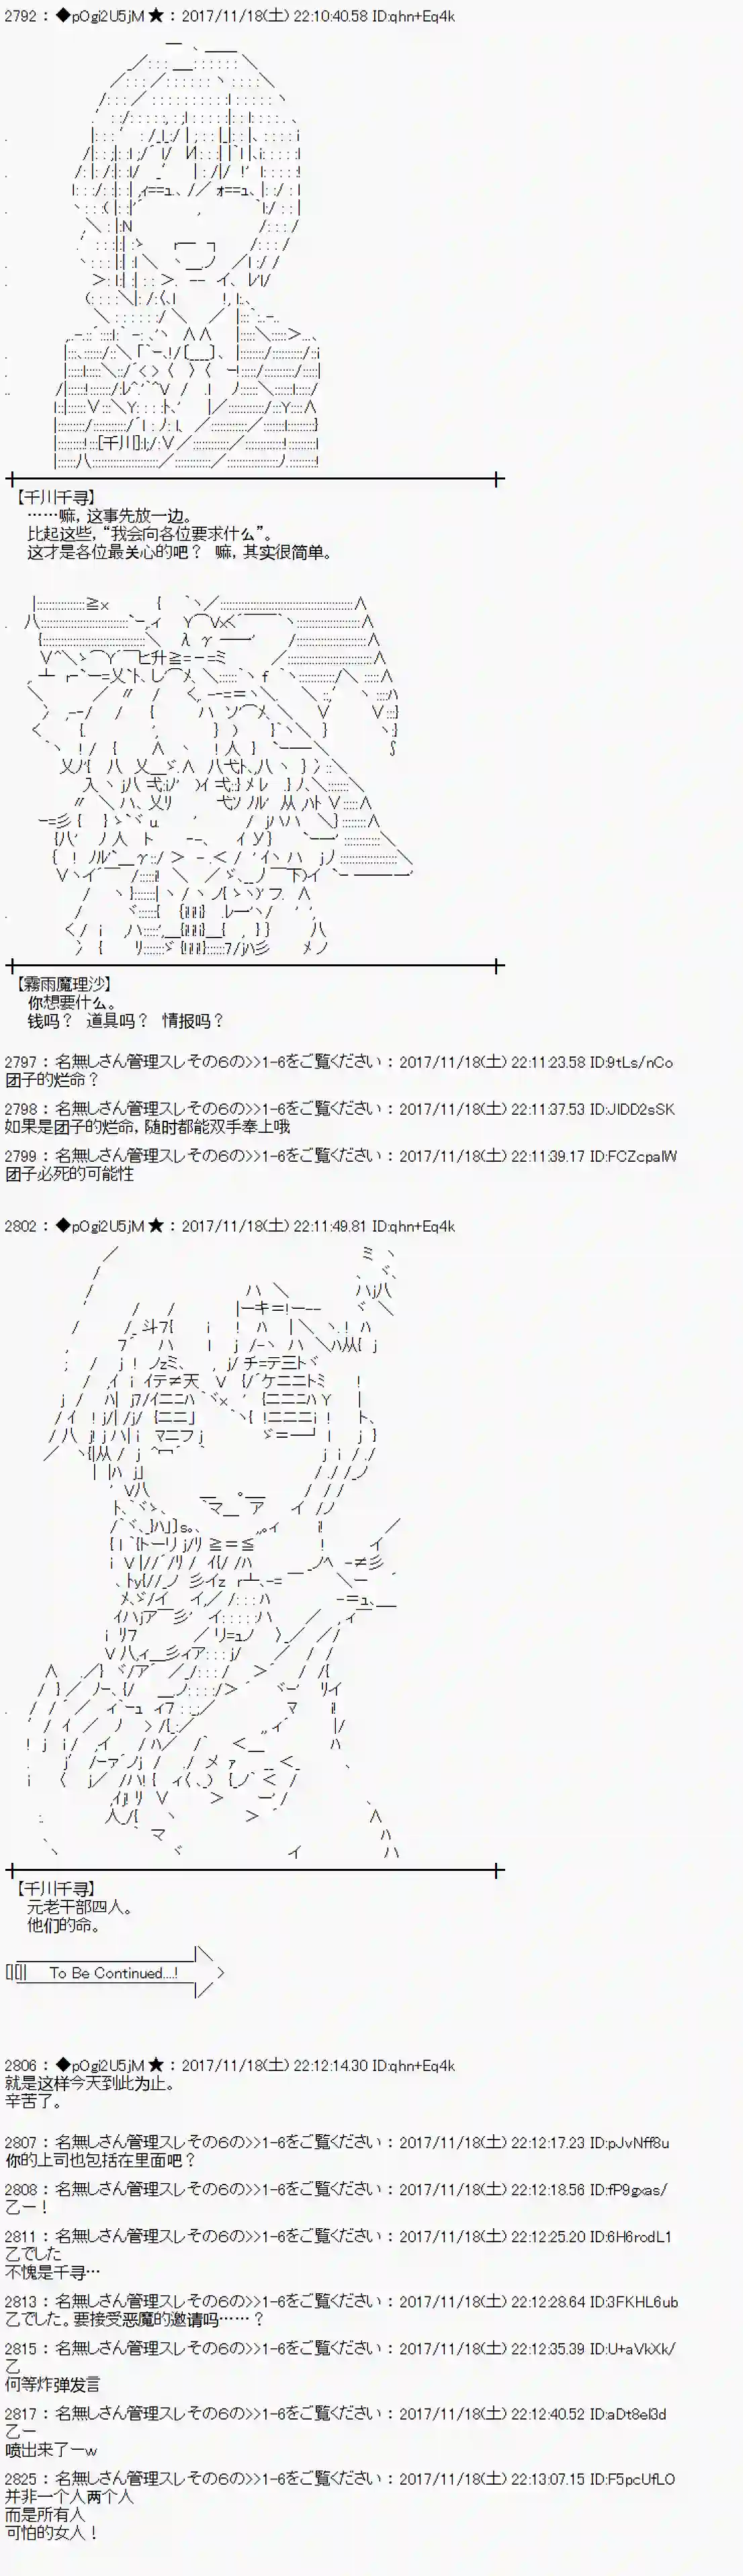 2792 : ◆pOgi2U5jM ★ : 2017/11/18(土) 22:10:40.58 ID:qhn+Eq4k
[千川]
【千川千寻】
……嘛，这事先放一边。
比起这些，“我会向各位要求什么”。
这才是各位最关心的吧？ 嘛，其实很简单。
【霧雨魔理沙】
你想要什么。
钱吗？ 道具吗？ 情报吗？
2797 : 名無しさん管理スレその6の>>1-6をご覧ください : 2017/11/18(土) 22:11:23.58 ID:9tLs/nCo
团子的烂命？
2798 : 名無しさん管理スレその6の>>1-6をご覧ください : 2017/11/18(土) 22:11:37.53 ID:JIDD2sSK
如果是团子的烂命，随时都能双手奉上哦
2799 : 名無しさん管理スレその6の>>1-6をご覧ください : 2017/11/18(土) 22:11:39.17 ID:FCZcpalW
团子必死的可能性
2802 : ◆pOgi2U5jM ★ : 2017/11/18(土) 22:11:49.81 ID:qhn+Eq4k
【千川千寻】
元老干部四人。
他们的命。
To Be Continued....!
2806 : ◆pOgi2U5jM ★ : 2017/11/18(土) 22:12:14.30 ID:qhn+Eq4k
就是这样今天到此为止。
辛苦了。
2807 : 名無しさん管理スレその6の>>1-6をご覧ください : 2017/11/18(土) 22:12:17.23 ID:pJvNff8u
你的上司也包括在里面吧？
2808 : 名無しさん管理スレその6の>>1-6をご覧ください : 2017/11/18(土) 22:12:18.56 ID:fP9gxas/
乙ー！
2811 : 名無しさん管理スレその6の>>1-6をご覧ください : 2017/11/18(土) 22:12:25.20 ID:6H6rodL1
乙でした
不愧是千寻…
2813 : 名無しさん管理スレその6の>>1-6をご覧ください : 2017/11/18(土) 22:12:28.64 ID:3FKHL6ub
乙でした。要接受恶魔的邀请吗……？
2815 : 名無しさん管理スレその6の>>1-6をご覧ください : 2017/11/18(土) 22:12:35.39 ID:U+aVkXk/
乙
何等炸弹发言
2817 : 名無しさん管理スレその6の>>1-6をご覧ください : 2017/11/18(土) 22:12:40.52 ID:aDt8el3d
乙ー
喷出来了ーw
2825 : 名無しさん管理スレその6の>>1-6をご覧ください : 2017/11/18(土) 22:13:07.15 ID:F5pcUfLO
并非一个人两个人
而是所有人
可怕的女人！